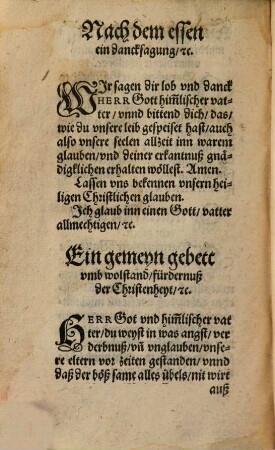 Nach dem essen
ein dancksagung/ ꝛc.
WJr sagen dir lob vnd danck
HERR Gott him̃lischer vat-
ter/ vnnd bittend dich/ das/
wie du vnsere leib gespeiset hast/ auch
also vnsere seelen allzeit inn warem
glauben/ vnd deiner erkantnuß gnä-
digklichen erhalten wöllest. Amen.
Lassen vns bekennen vnsern hei-
ligen Christlichen glauben.
Jch glaub inn einen Gott/ vatter
allmechtigen/ ꝛc.
Ein gemeyn gebett
vmb wolstand/ fürdernuß
der Christenheyt/ ꝛc.
HERR Got vnd him̃lischer vat
ter/ du weyst in was angst/ ver
derbnuß/ vñ vnglauben/ vnse-
re eltern vor zeiten gestanden/ vnnd
daß der böß same alles übels/ nit wirt
auß